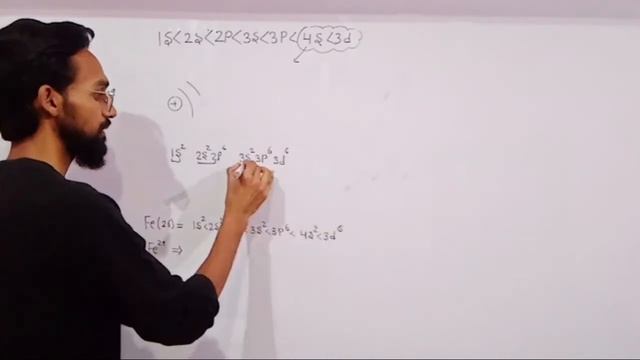 1S<2S<2P<3S<3P<4S<3d
+
1S² 2S²2P⁶ 3S²3P⁶3d⁶
Fe(26)= 1S²<2S² <3S²<3P⁶<4S²<3d⁶
Fe²⁺ ⇒